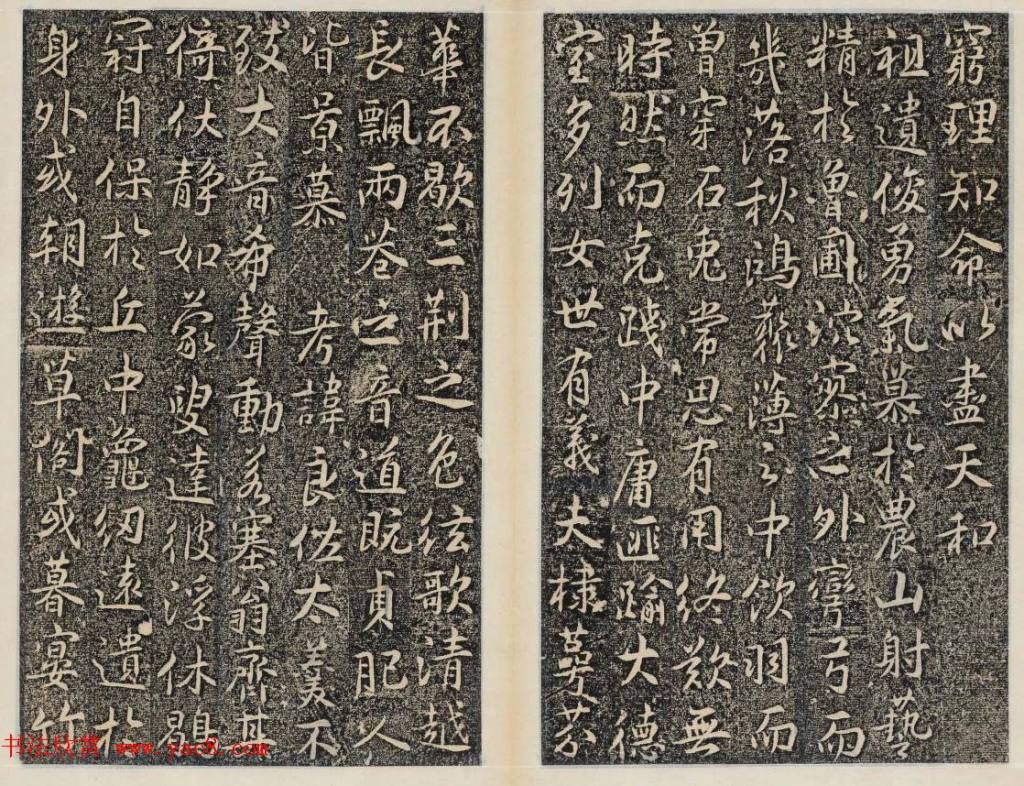 窮理知命以盡天和
祖遺俊勇氣慕於農山射藝
精於魯圃泬寥之外彎弓而
幾落秋鴻藂薄之中飲羽而
曾穿石兔常思有用終歎無
時然而克踐中庸匪踰大德
室多列女世有義夫棣萼芬
華不歇三荆之色絃歌清越
長飄兩巷之音道既貞肥人
皆景慕 考諱良佐太羹不
致大音希聲動若塞翁齊其
倚伏靜如蒙叟達彼浮休鶡
冠自保於丘中龜紉遠遺於
身外或朝遊草閤或暮宴竹
书法欣赏 www.yac8.com